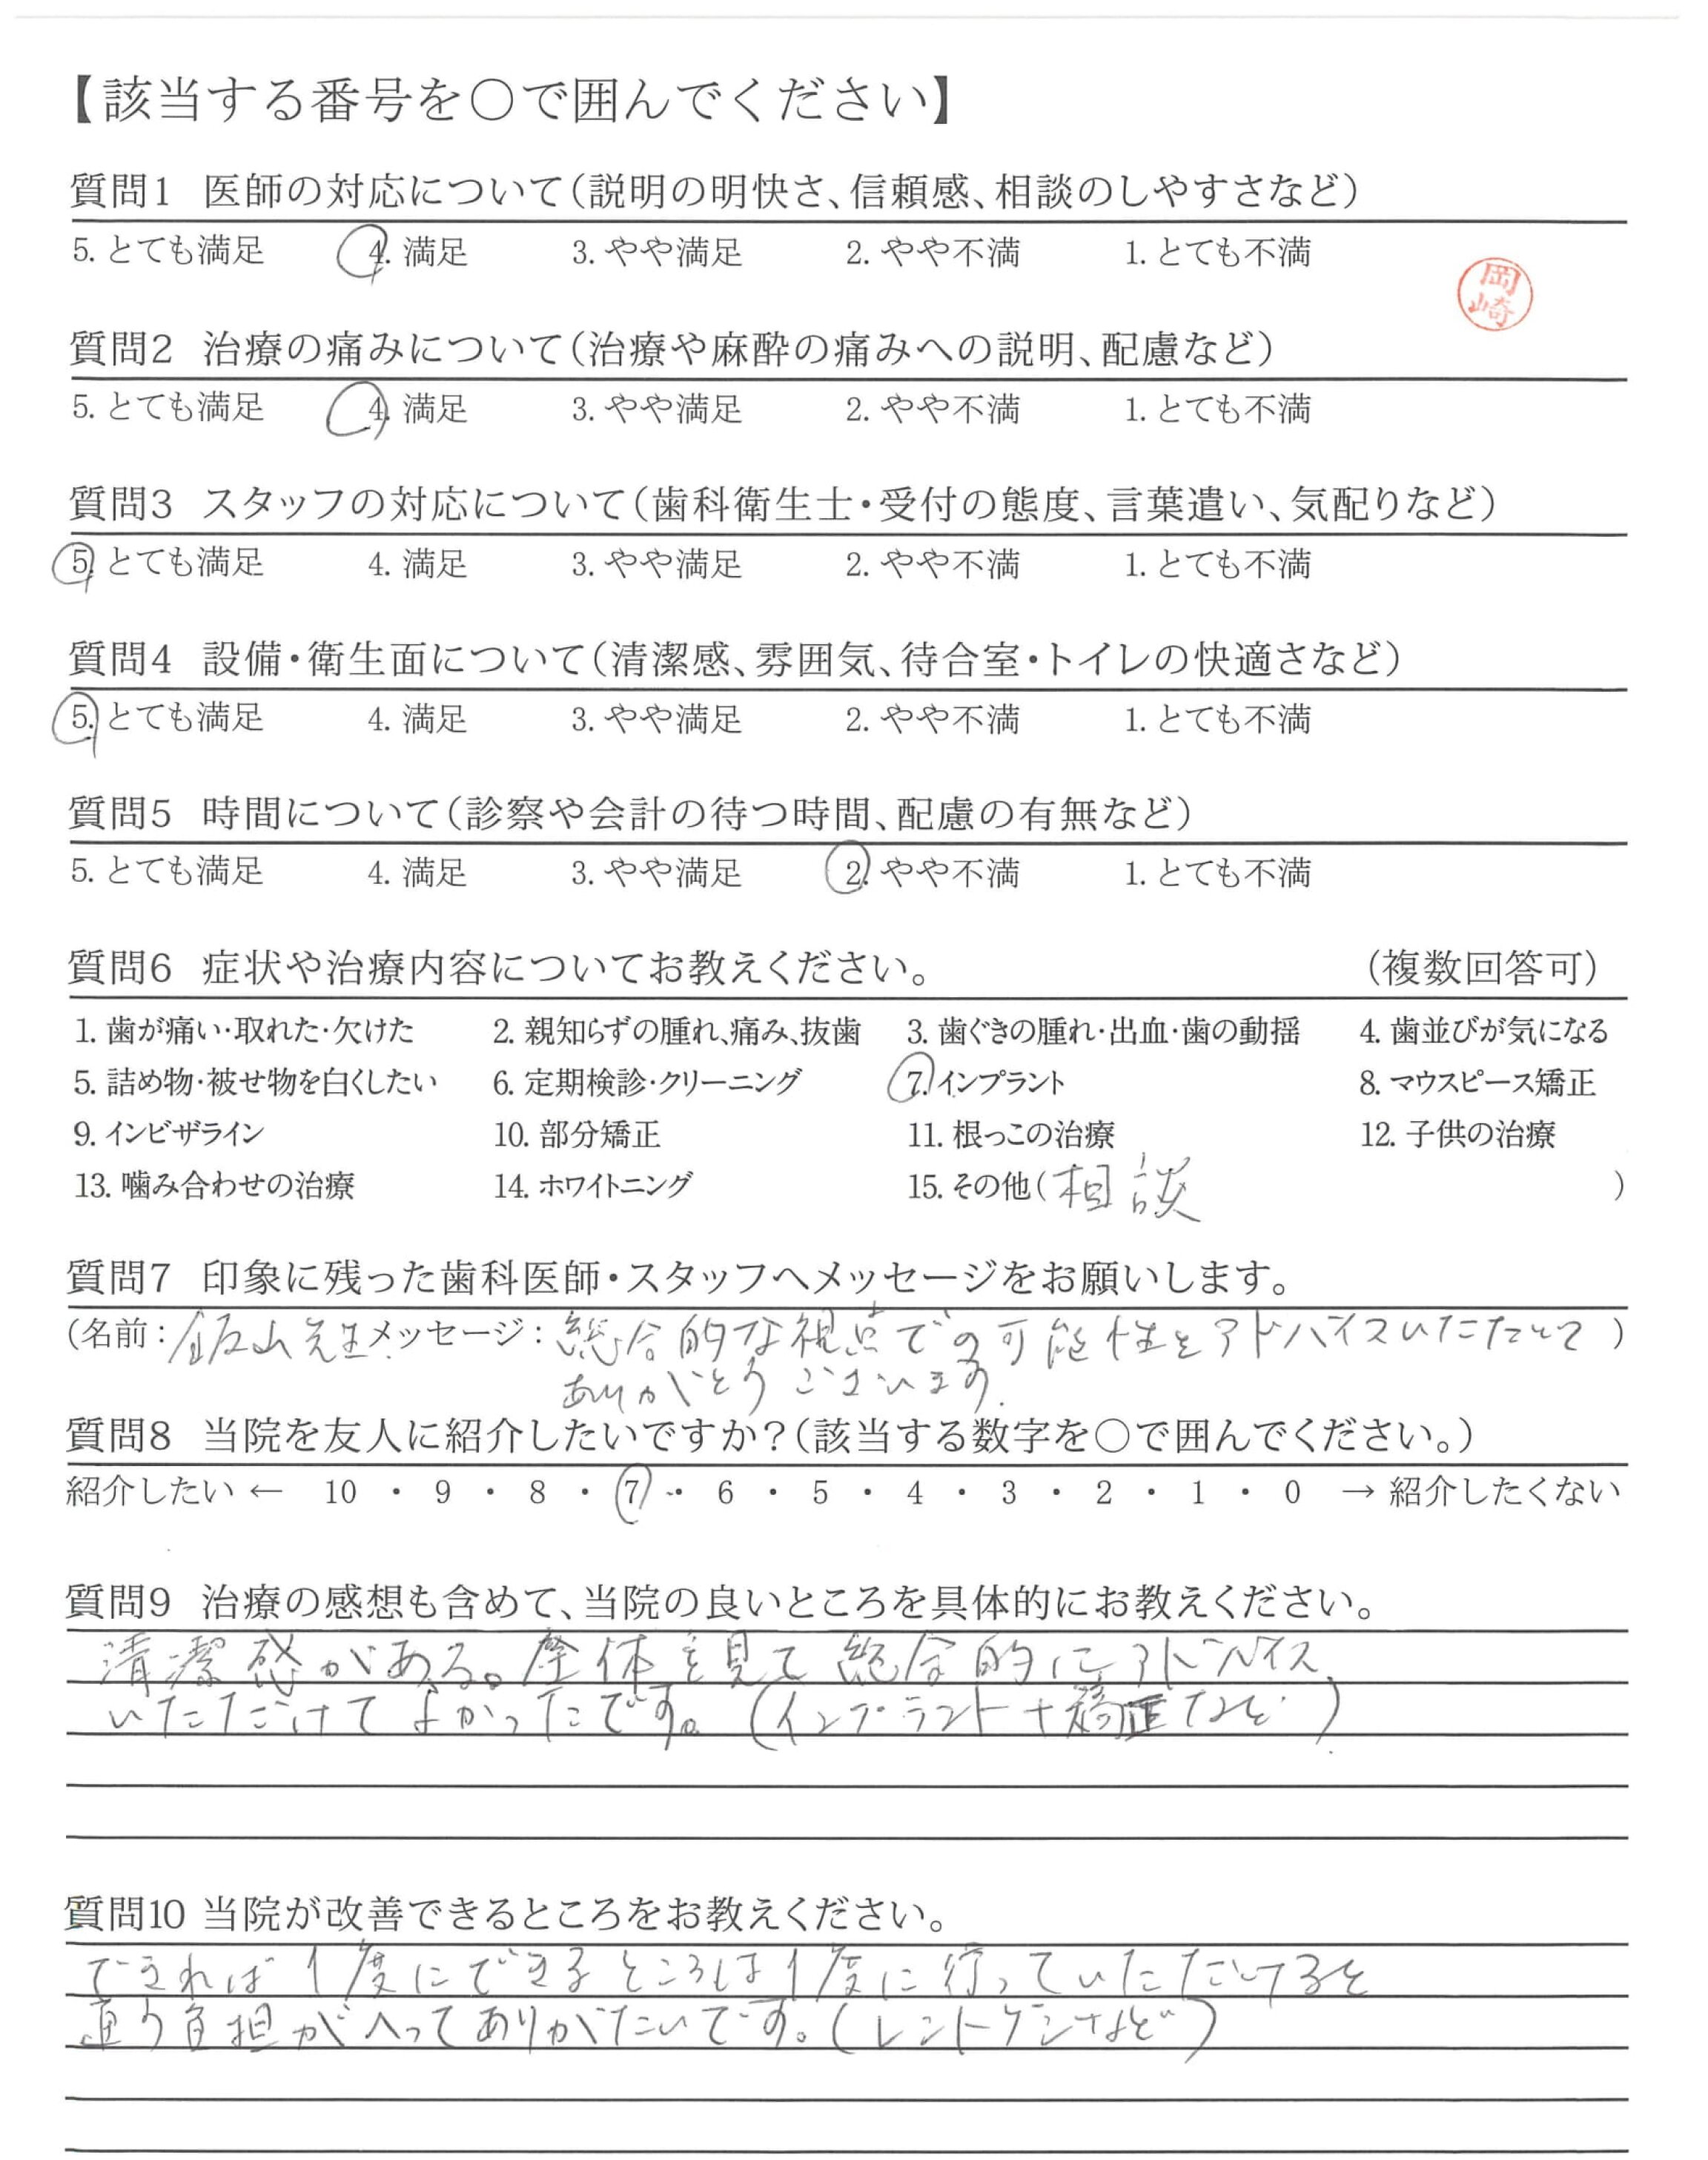 【該当する番号を○で囲んでください】
質問1 医師の対応について(説明の明快さ、信頼感、相談のしやすさなど)
5. とても満足 4. 満足 3. やや満足 2. やや不満 1. とても不満
岡崎
質問2 治療の痛みについて(治療や麻酔の痛みへの説明、配慮など)
5. とても満足 4. 満足 3. やや満足 2. やや不満 1. とても不満
質問3 スタッフの対応について(歯科衛生士・受付の態度、言葉遣い、気配りなど)
5. とても満足 4. 満足 3. やや満足 2. やや不満 1. とても不満
質問4 設備・衛生面について(清潔感、雰囲気、待合室・トイレの快適さなど)
5. とても満足 4. 満足 3. やや満足 2. やや不満 1. とても不満
質問5 時間について(診察や会計の待つ時間、配慮の有無など)
5. とても満足 4. 満足 3. やや満足 2. やや不満 1. とても不満
質問6 症状や治療内容についてお教えください。 (複数回答可)
1. 歯が痛い・取れた・欠けた 2. 親知らずの腫れ、痛み、抜歯 3. 歯ぐきの腫れ・出血・歯の動揺 4. 歯並びが気になる
5. 詰め物・被せ物を白くしたい 6. 定期検診・クリーニング 7. インプラント 8. マウスピース矯正
9. インビザライン 10. 部分矯正 11. 根っこの治療 12. 子供の治療
13. 噛み合わせの治療 14. ホワイトニング 15. その他(相談)
質問7 印象に残った歯科医師・スタッフへメッセージをお願いします。
(名前:飯山先生 メッセージ:総合的な視点での可能性をアドバイスいただいて)
ありがとうございます.
質問8 当院を友人に紹介したいですか?(該当する数字を○で囲んでください。)
紹介したい ← 10 ・ 9 ・ 8 ・ 7 ・ 6 ・ 5 ・ 4 ・ 3 ・ 2 ・ 1 ・ 0 → 紹介したくない
質問9 治療の感想も含めて、当院の良いところを具体的にお教えください。
清潔感がある。全体を見て総合的にアドバイス
いただけてよかったです。(インプラント+矯正など)
質問10 当院が改善できるところをお教えください。
できれば1度にできるところは1度に行っていただけると
通う負担がへってありがたいです。(レントゲンなど)